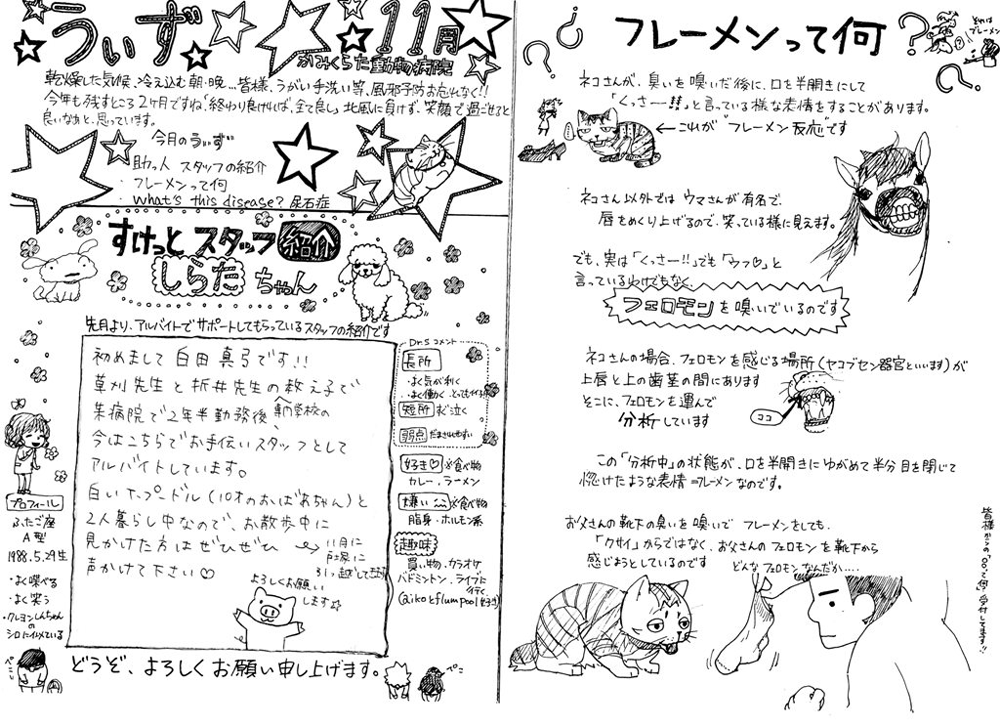 うぃず 11月
ふみくらた動物病院
乾燥した気候、冷え込む朝・晩…皆様、うがい手洗い等、風邪予防お忘れなく!!
今年も残すところ2ヶ月ですね。終わり良ければ、全て良し。北風に負けず、笑顔で過ごせると
良いなぁと、思っています。
今月のうぃず
助っ人 スタッフの紹介
・フレーメンって何
・What's this disease? 尿石症
すけっと スタッフ 紹介
しらた ちゃん
先月より、アルバイトでサポートしてもらっているスタッフの紹介です
初めまして 白田 真弓です!!
草刈先生と折井先生の教え子で
専門学校の
某病院で2年半勤務後、
今はこちらでお手伝いスタッフとして
アルバイトしています。
白いたプードル(10才のおばあちゃん)と
2人暮らし中なので、お散歩中に
見かけた方はぜひぜひ
声かけて下さい♡
11月に
引っ越して
よろしくお願い
します☆
Dr.S コメント
長所
・よく気が利く
・よく働く
短所 すぐ泣く
弱点 だまされやすい
好き♡ ※食べ物
カレー・ラーメン
嫌い ※食べ物
脂身・ホルモン系
趣味
買い物、カラオケ
バドミントン、ライブに
行く
(aikoとflumpool好き)
プロフィール
ふたご座
A型
1988.5.29生
・よく喋べる
・よく笑う
・クレヨンしんちゃんの
シロに似ている
ぺこ
どうぞ、よろしくお願い申し上げます。
ぺこ
フレーメンって何
それは
フレーメン
ネコさんが、臭いを嗅いだ後に、口を半開きにして
「くっさー!!」と言っている様な表情をすることがあります。
← これが "フレーメン反応"です
ネコさん以外では ウマさんが有名で、
唇をめくり上げるので、笑っている様に見えます。
でも、実は「くっさー!!」でも「ウフ♡」と
言っているわけでもなく、
フェロモンを嗅いでいるのです
ネコさんの場合、フェロモンを感じる場所(ヤコブセン器官といいます)が
上唇と上の歯茎の間にあります
そこに、フェロモンを運んで
分析しています
ココ
この「分析中」の状態が、口を半開きにゆがめて半分目を閉じて
惚けたような表情=フレーメンなのです。
お父さんの靴下の臭いを嗅いで フレーメンをしても、
「クサイ」からではなく、お父さんのフェロモンを靴下から
感じようとしているのです
どんなフェロモンなんだか….
皆様からの「○○って何」受付してます!!